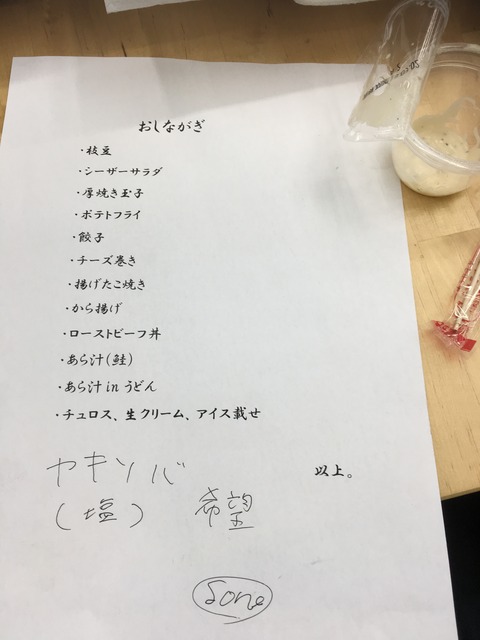 おしながき
・枝豆
・シーザーサラダ
・厚焼き玉子
・ポテトフライ
・餃子
・チーズ巻き
・揚げたこ焼き
・から揚げ
・ローストビーフ丼
・あら汁(鮭)
・あら汁 in うどん
・チュロス、生クリーム、アイス載せ
以上。
ヤキソバ
(塩) 希望